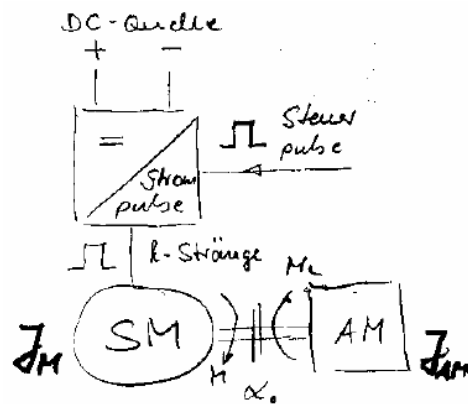 DC-Quelle
+ −
=
Steuer
pulse
Strom
pulse
k-Stränge
M_L
J_M
SM
M
α.
AM
J_AM